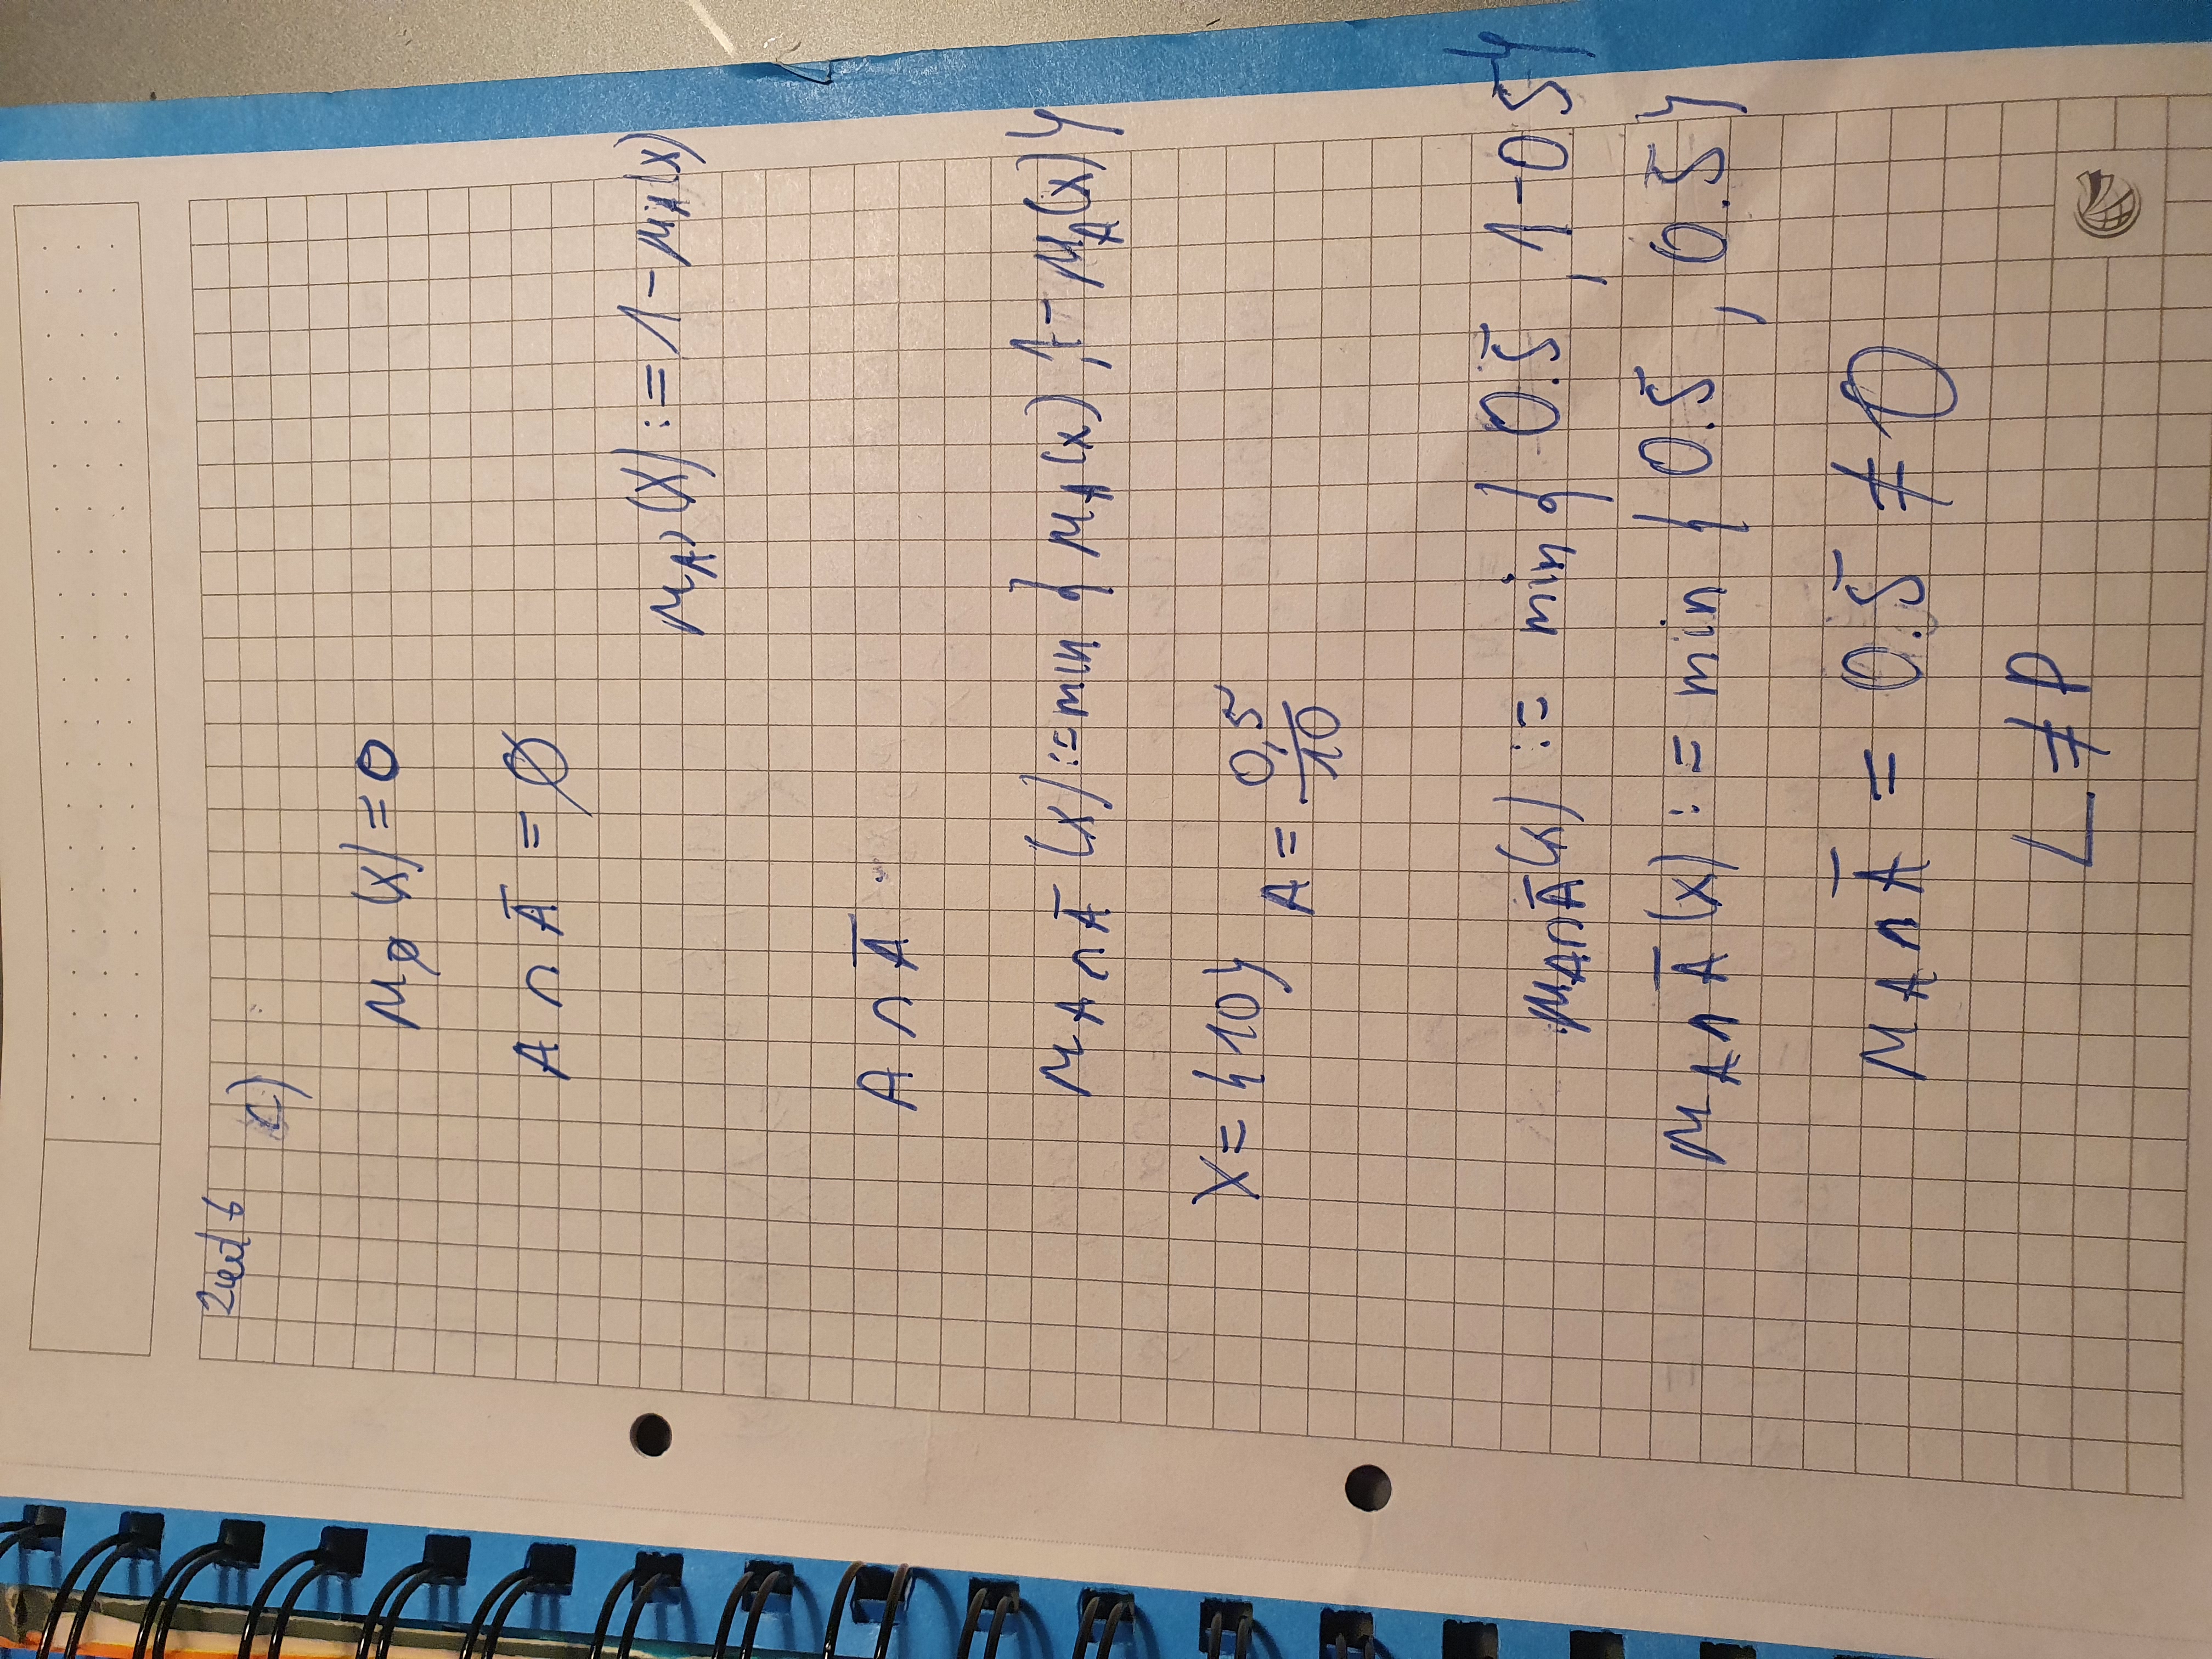 Zad 6
c)
μ∅(x) = 0
A ∩ A̅ = ∅
μA'(x) := 1 - μA(x)
A ∩ A̅
μA∩A̅ (x) := min { μA(x) , 1 - μA(x) }
X = {10}
A = 0,5/10
μA∩A̅(x) := min { 0.5 , 1 - 0.5 }
μA∩A̅(x) := min { 0.5 , 0.5 }
μA∩A̅ = 0.5 ≠ 0
L ≠ P